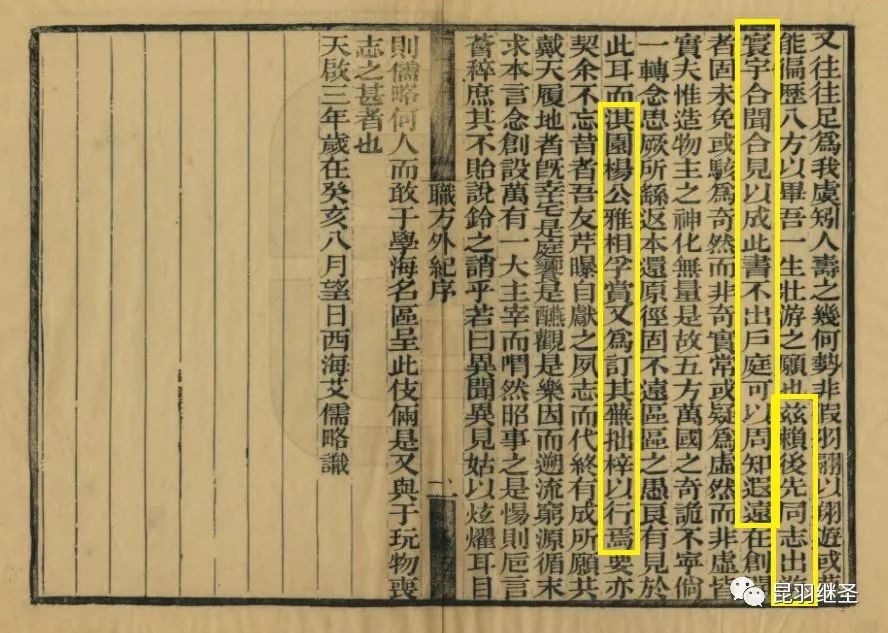 又往往足爲我虞矧人壽之幾何勢非假羽翮以翔遊或
能徧歷八方以畢吾一生壯游之願也兹賴後先同志出
寰宇合聞合見以成此書不出戶庭可以周知遐遠在創
者固未免或駭爲奇然而非奇實常或疑爲虛然而非虛皆
實夫惟造物主之神化無量是故五方萬國之奇詭不寧倘
一轉念思厥所繇返本還原徑固不遠區區之愚良有見於
此耳而淇園楊公雅相孚賞又爲訂其蕪拙梓以行焉要亦
契余不忘昔者吾友芹曝自獻之夙志而代終有成所願共
戴天履地者既幸宅是庭饗是醼觀是樂因而遡流窮源循末
求本言念創設萬有一大主宰而喟然昭事之是惕則巵言
薈稡庶其不貽說鈴之誚乎若曰異聞異見姑以炫燿耳目
職方外紀序 二
則儒略何人而敢于學海名區呈此伎倆是又與于玩物喪
志之甚者也
天啟三年歲在癸亥八月望日西海艾儒略識
昆羽继圣